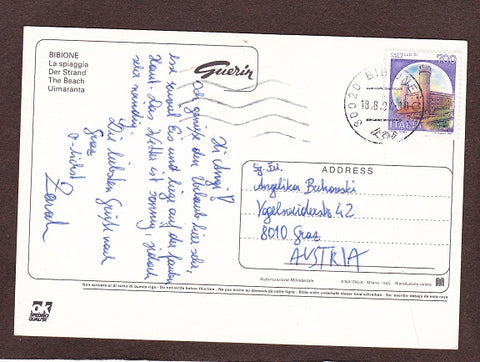 BIBIONE
La spiaggia
Der Strand
The Beach
Uimaranta
Guerin
700
ITALIA
30020 BIBIONE
18.8.9
Hi Angi!
Ich genieße den Urlaub hier sehr,
esse soviel Eis und liege auf der faulen
Haut. Das Wetter ist sonnig, jedoch
sehr windig.
Die liebsten Grüße nach
Graz
Sarah
ADDRESS
Angelika
Vogelweiderstr. 42
8010 Graz
AUSTRIA
Autorizzazione Ministeriale
KINA ITALIA - Milano - Italy - Riproduzione vietata
Non scrivere al di sotto di questa riga - Do not write below this line - Ne pas écrire au dessous de cette ligne - Bitte nicht unterhalb dieser Linie schreiben - No escribir debajo de esta raya
ok